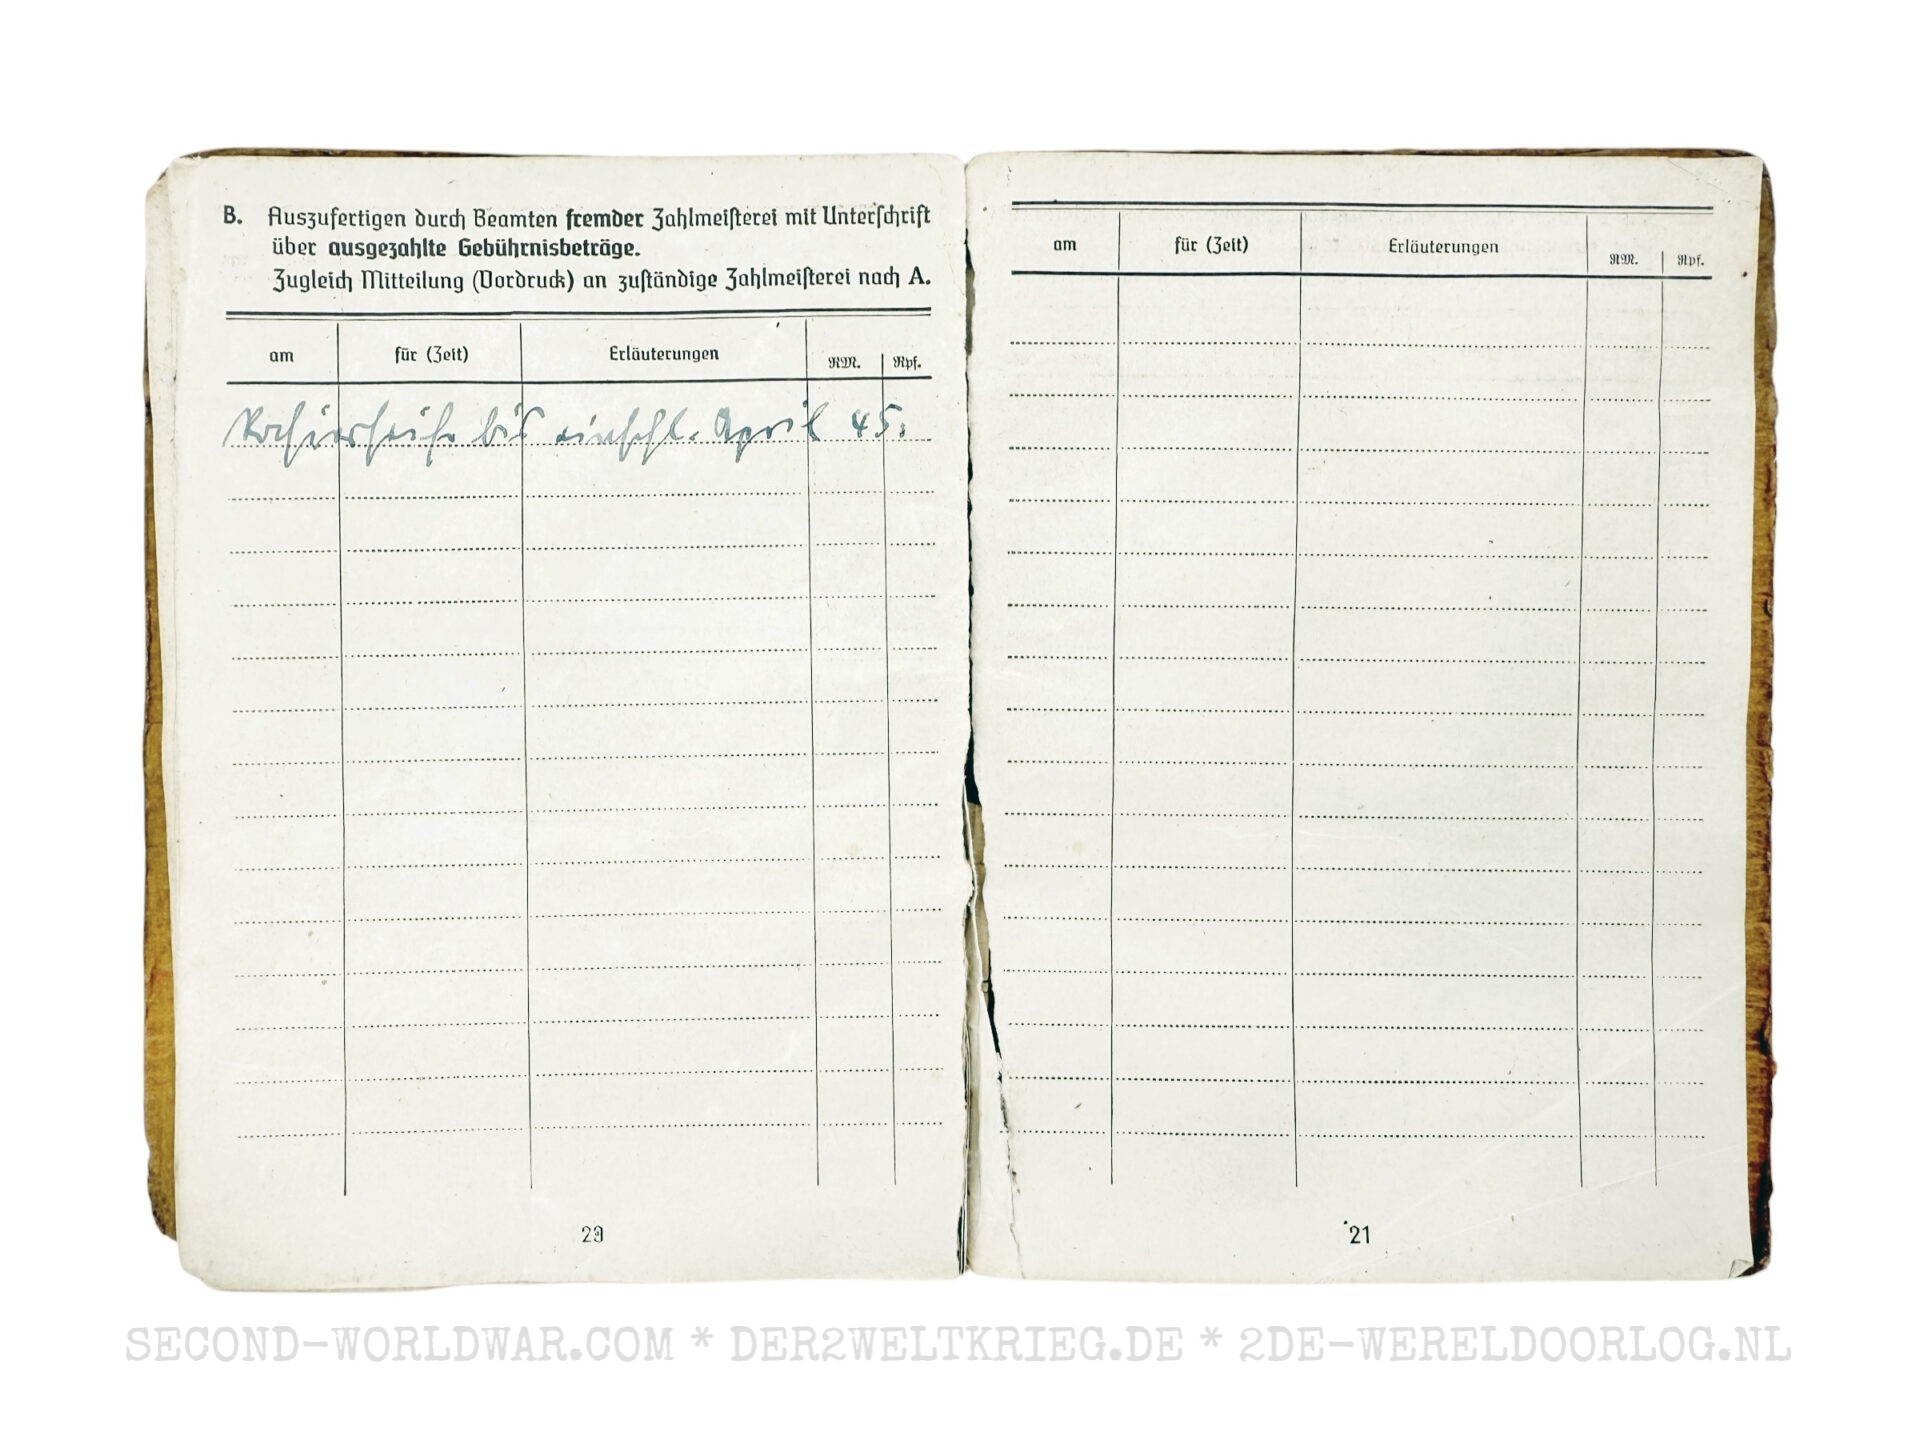 B. Auszufertigen durch Beamten fremder Zahlmeisterei mit Unterschrift
über ausgezahlte Gebührnisbeträge.
Zugleich Mitteilung (Vordruck) an zuständige Zahlmeisterei nach A.
am für (Zeit) Erläuterungen RM. Rpf.
bis einschl. April 45.
20
am für (Zeit) Erläuterungen RM. Rpf.
21
SECOND-WORLDWAR.COM * DER2WELTKRIEG.DE * 2DE-WERELDOORLOG.NL